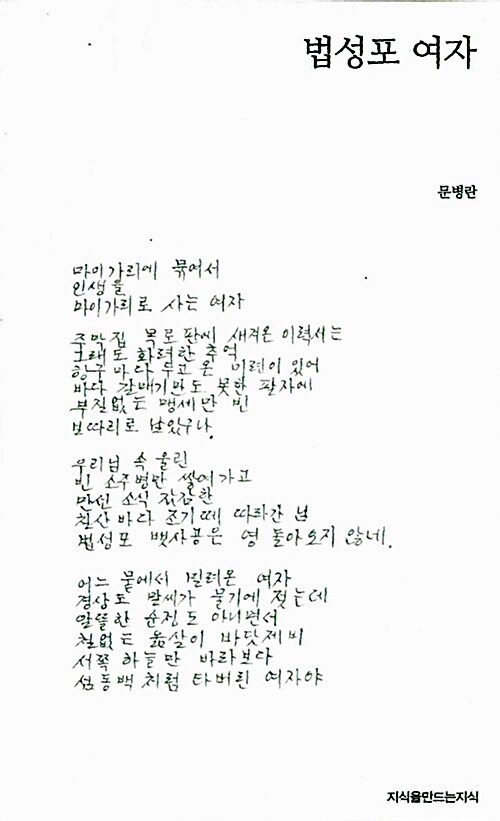 법성포 여자
문병란
마이가리에 묶여서
인생을
마이가리로 사는 여자
주막집 목로판에 새겨온 이력서는
그래도 화려한 추억
항구마다 두고 온 미련이 있어
바다 갈매기만도 못한 팔자에
부질없는 맹세만 빈
보따리로 남았구나.
우리님 속 울린
빈 소주병만 쌓여가고
만선 소식 감감한
칠산바다 조기떼 따라간 님
법성포 뱃사공은 영 돌아오지 않네.
어느 뭍에서 밀려온 여자
경상도 말씨가 물기에 젖는데
알뜰한 순정도 아니면서
철없는 옮살이 바닷제비
서쪽 하늘만 바라보다
섬동백처럼 타버린 여자야
지식을만드는지식